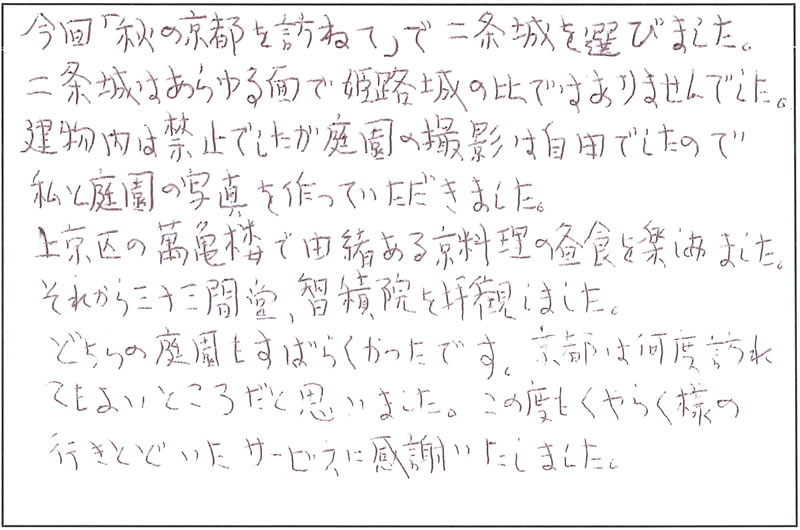 今回「秋の京都を訪ねて」で二条城を選びました。
二条城はあらゆる面で姫路城の比ではありませんでした。
建物内は禁止でしたが庭園の撮影は自由でしたので
私と庭園の写真を作っていただきました。
上京区の萬亀楼で由緒ある京料理の昼食を楽しみました。
それから三十三間堂、智積院を拝観しました。
どちらの庭園もすばらしくかったです。京都は何度訪れ
てもよいところだと思いました。この度もくやらく様の
行きとどいたサービスに感謝いたしました。